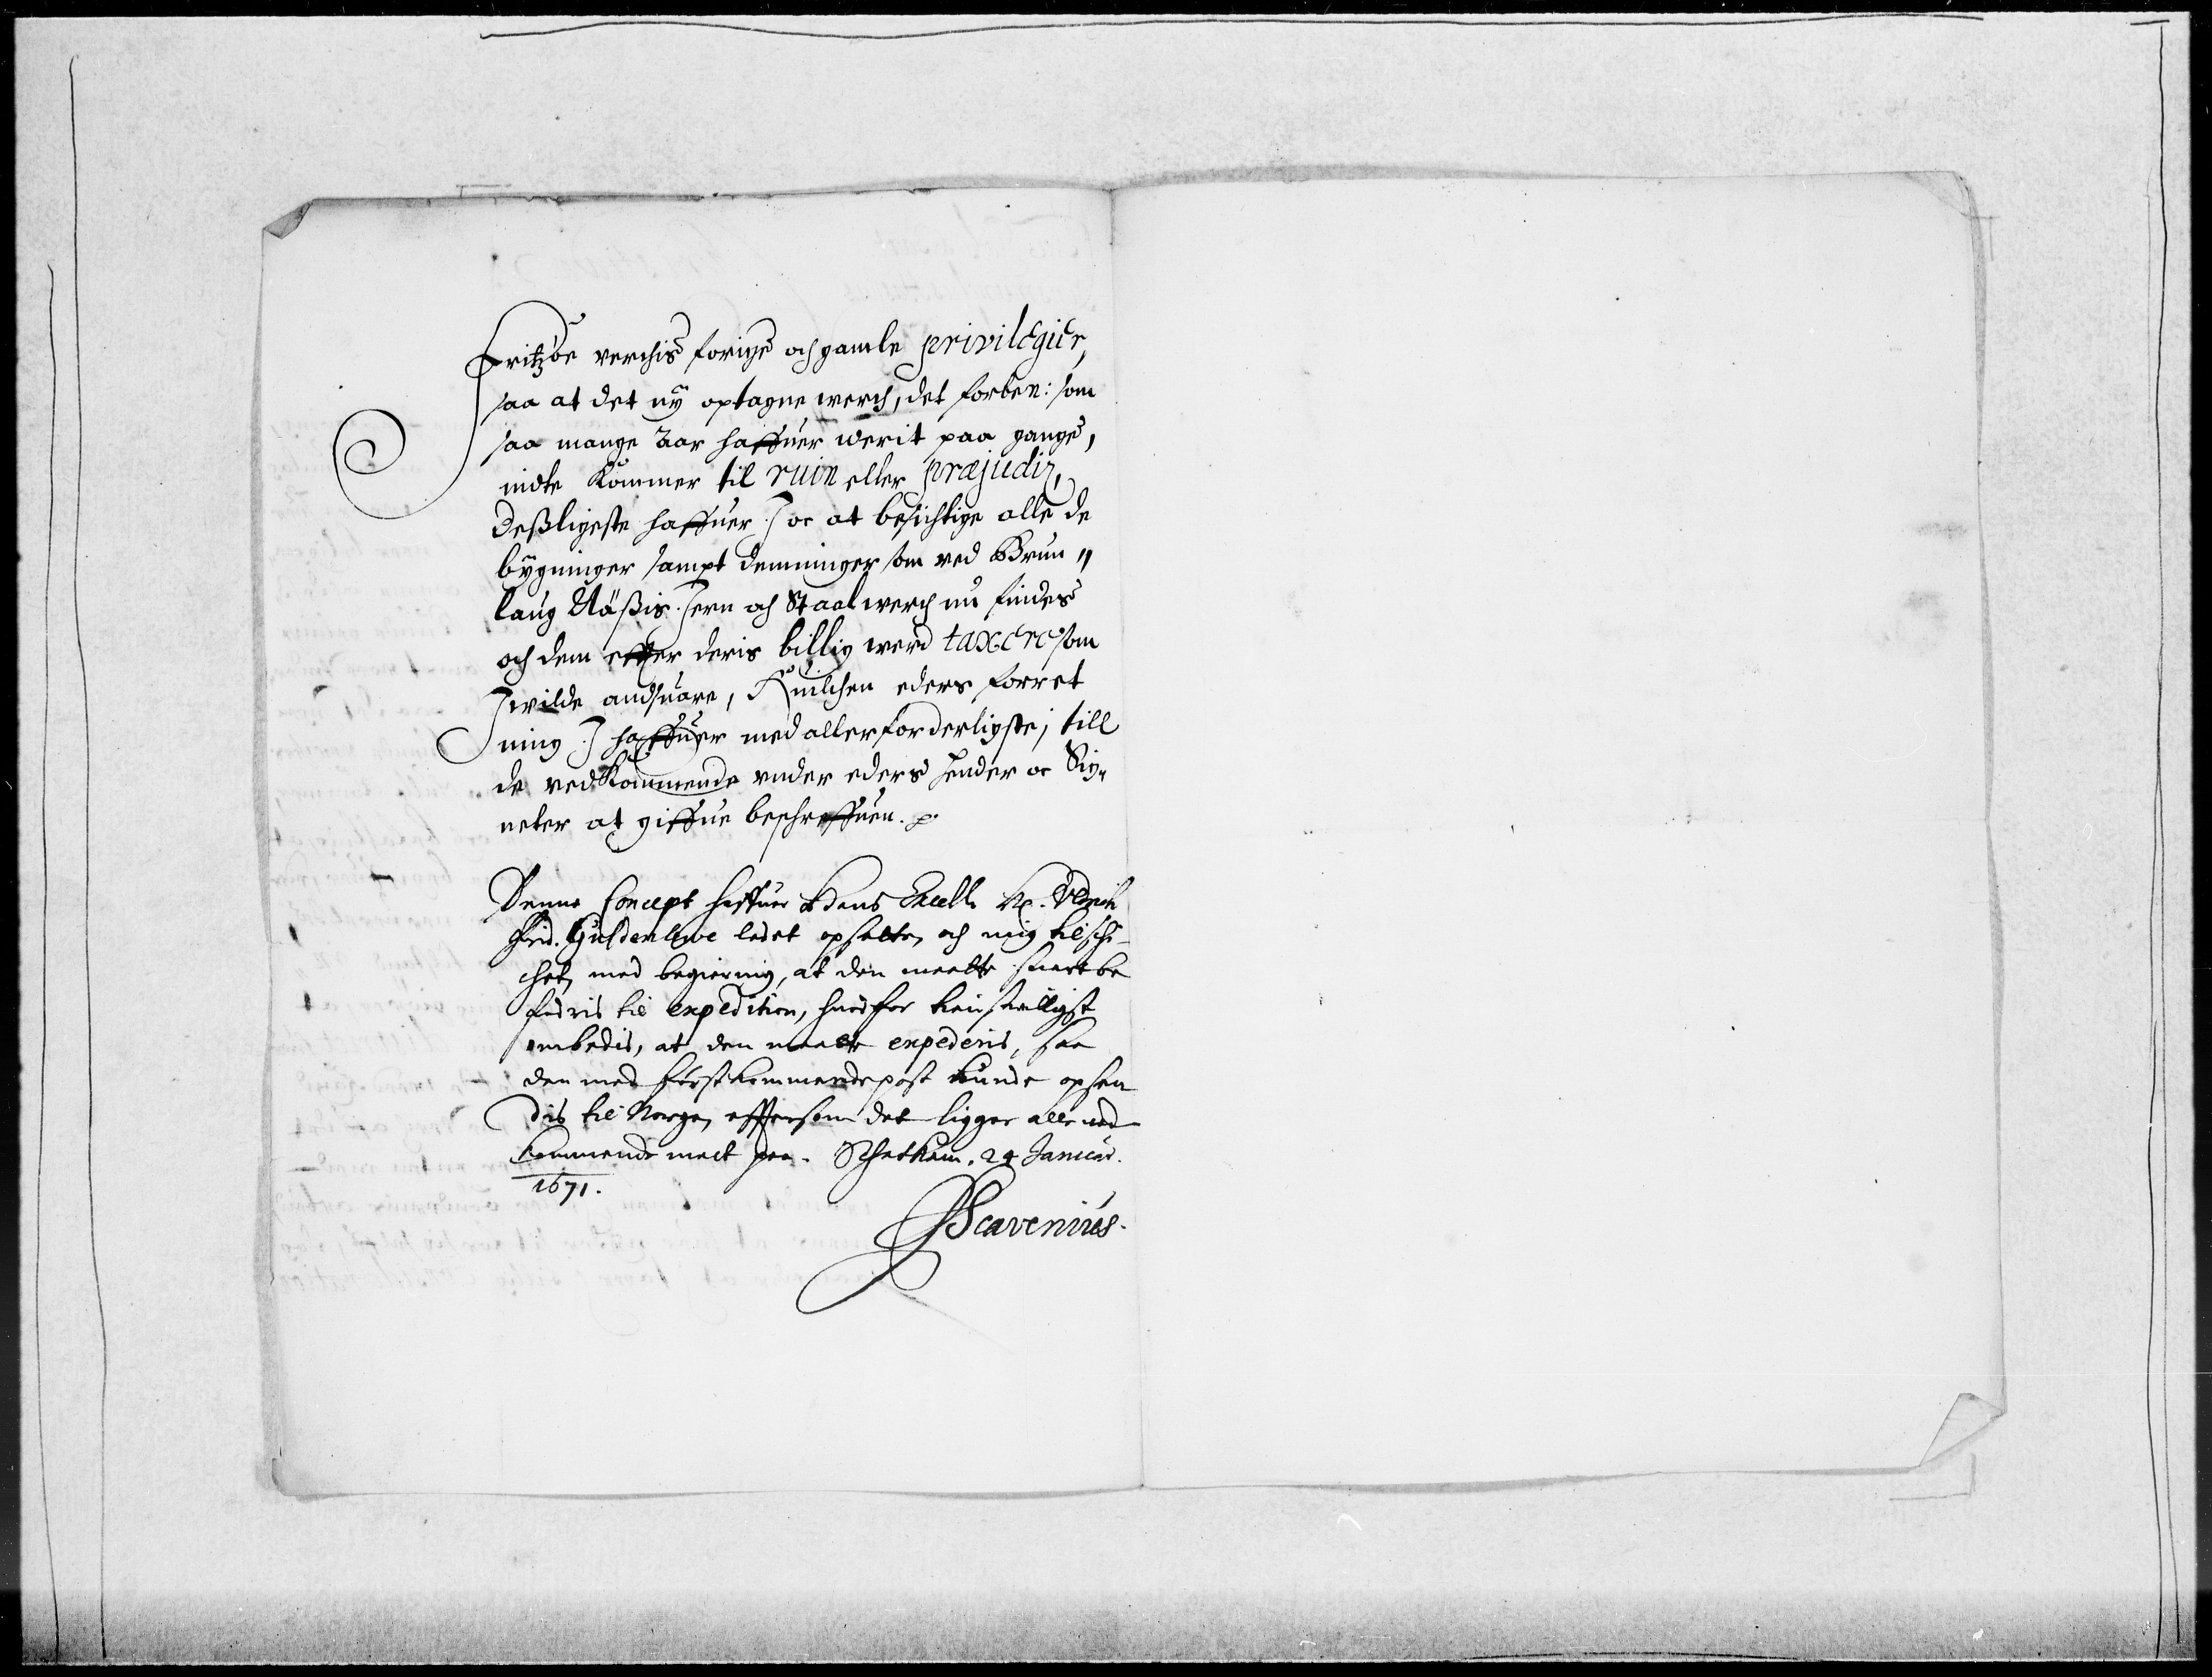 Fritzöe verchis forige och gamle privilegier,
saa at det ny optagne werch, det forben: som
saa mange Aar haffuer werit paa gange,
indte Kommer til ruin eller præjudiz,
Dessligeste haffuer I oc at besichtige alle de
bygninger sampt demninger som ved Brun„
laug Näßis Jern och Staalwerch nu findes
och dem effter deris billig werd taxere som
I wilde andsuare, Huilchen eders forret
ning I haffuer med allerforderligste, till
de vedkommende vnder eders Hender oc Sig„
neter at giffue beschreffuen. p.
Denne Concept haffuer Hans Excell: Hr. Vlrich
Frid. Guldenlewe ladet opsette, och mig tilschi-
chet, med begiering, at den maatte snart be
fodris til expedition, huorfor tienstvilligst
ombedis, at den maatte expederis, saa
den med förstkommende post kunde opsen
dis til Norge, effersom det ligger alle ved
kommende magt paa. Schatkam. 24 Januar.
1671.
PScavenius.